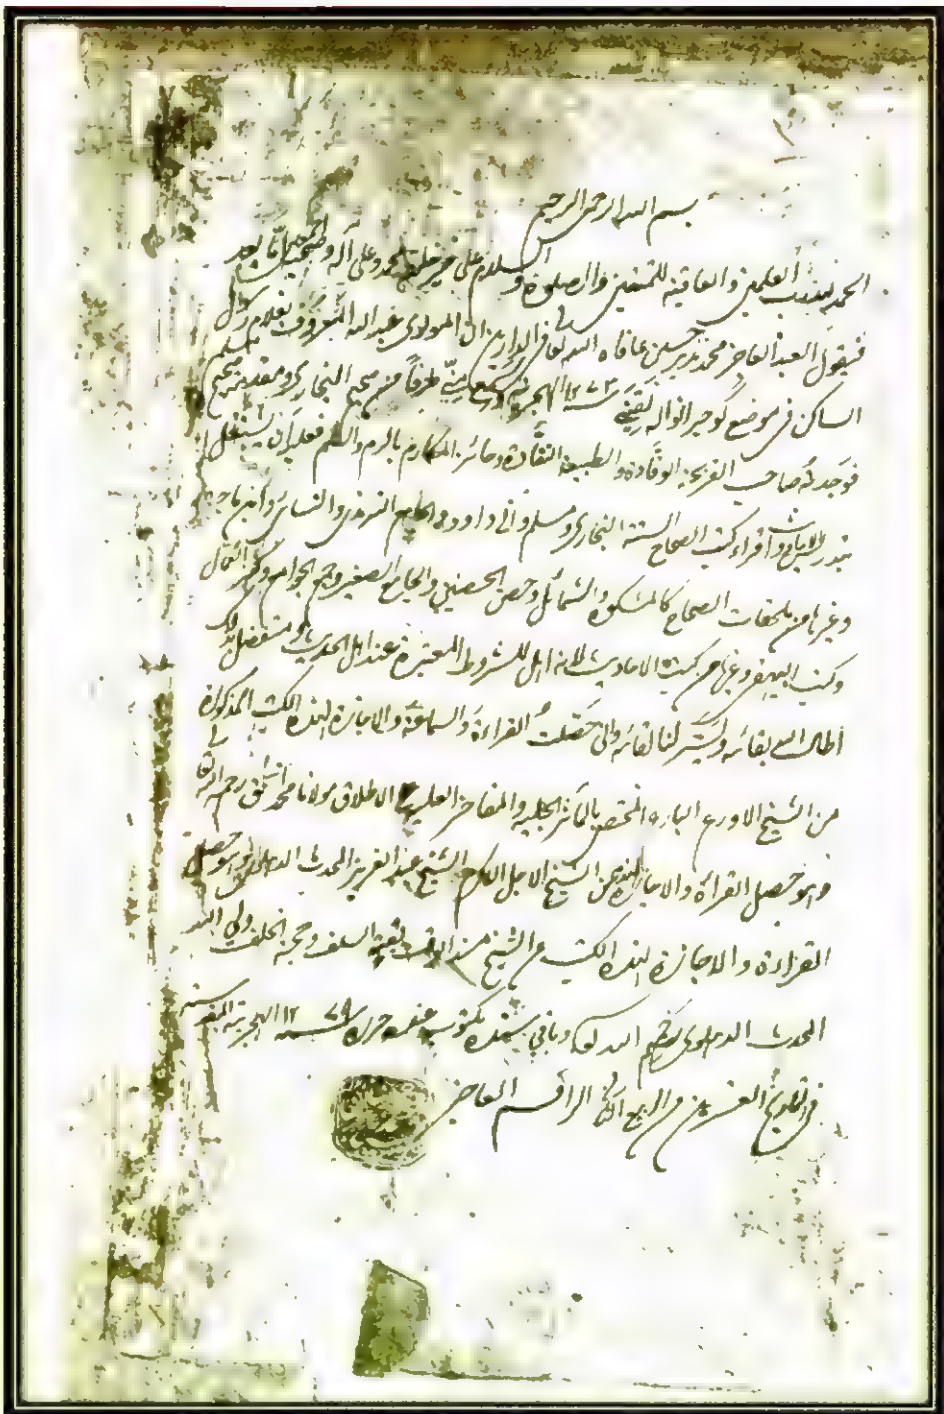 بسم الله الرحمن الرحيم
الحمد لله رب العلمين والعاقبة للمتقين والصلوة والسلام على خير خلقه محمد وعلى آله وصحبه اجمعين اما بعد
فيقول العبد العاجز محمد نذير حسين عافاه الله تعالى في الدارين ان المولوي عبد الله المعروف بغلام رسول
الساكن في موضع گوجرانواله لقيني ١٢٧٣ الهجرية وسمع مني طرفا من صحيح البخاري ومقدمة صحيح مسلم
فوجدته صاحب القريحة الوقادة والطبيعة النقادة وحائز المكارم فعليه ان يشتغل
بتدريس واقراء كتب الصحاح الستة البخاري ومسلم وابي داود والجامع الترمذي والنسائي وابن ماجه
وغيرها من ملحقات الصحاح كالمشكوة والشمائل وحصن الحصين والجامع الصغير وجمع الجوامع وكنز العمال
وكتب البيهقي وغيرها من كتب الاحاديث لانه اهل للشروط المعتبرة عند اهل الحديث
اطال الله بقائه ويسر لنا لقائه واني حصلت القراءة والسماعة والاجازة لهذه الكتب المذكورة
من الشيخ الاورع البارع المختص بالمآثر الجلية والمفاخر العلية على الاطلاق مولانا محمد اسحق رحمه الله تعالى
وهو حصل القراءة والاجازة لهذه عن الشيخ الاجل الاكرم الشيخ عبد العزيز المحدث الدهلوي وهو حصل
القراءة والاجازة لهذه الكتب عن الشيخ مسند الوقت بقية السلف وحجة الخلف ولي الله
المحدث الدهلوي رحمهم الله تعالى وباقي سنده مكتوب عنده حرره ١٢٧٩ الهجرية المقدسة
في التاريخ العشرين من الربيع الثاني الراقم العاجز